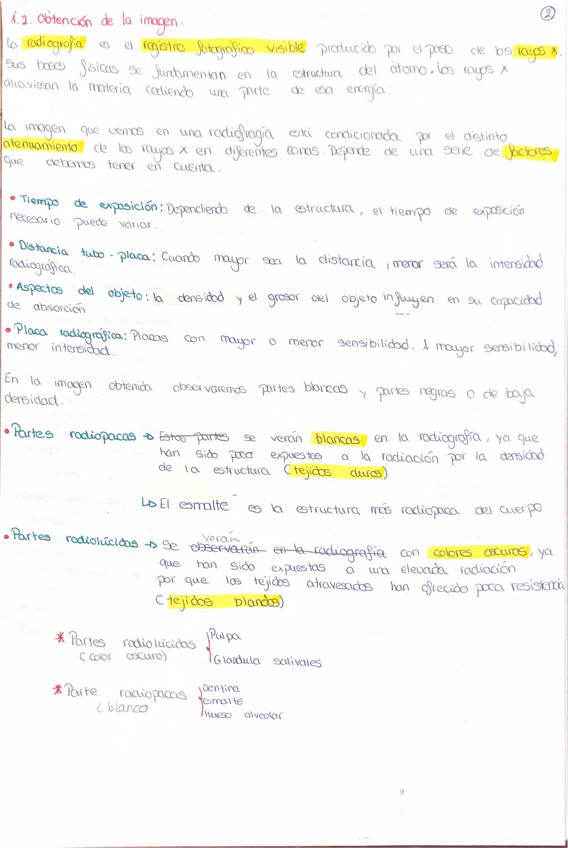 ②
1.2. Obtención de la imagen.
La radiografía es el registro fotográfico visible producido por el paso de los rayos x.
Sus bases físicas se fundamentan en la estructura del átomo. Los rayos x
atraviesan la materia cediendo una parte de esa energía.
La imagen que vemos en una radiofragía está condicionada por el distinto
atenuamiento de los rayos x en diferentes zonas. Depende de una serie de factores
que debemos tener en cuenta:
• Tiempo de exposición: Dependiendo de la estructura, el tiempo de exposición
necesario puede variar.
• Distancia tubo - placa: Cuando mayor sea la distancia, menor será la intensidad
radiográfica.
• Aspectos del objeto: la densidad y el grosor del objeto influyen en su capacidad
de absorción
• Placa radiográfica: Placas con mayor o menor sensibilidad. A mayor sensibilidad,
menor intensidad.
En la imagen obtenida observaremos partes blancas y partes negras o de baja
densidad.
• Partes radiopacas → Estas partes se verán blancas en la radiografía, ya que
han sido poco expuestos a la radiación por la densidad
de la estructura (tejidos duros)
↳ El esmalte es la estructura más radiopaca del cuerpo
• Partes radiolúcidas → Se observarán en la radiografía verán con colores oscuros, ya
que han sido expuestas a una elevada radiación
por que los tejidos atravesados han ofrecido poca resistencia
(tejidos blandos)
* Partes radiolúcidas Pulpa
(color oscuro)
Glandula salivales
* Parte radiopacas Dentina
(blanco esmalte
Hueso alveolar